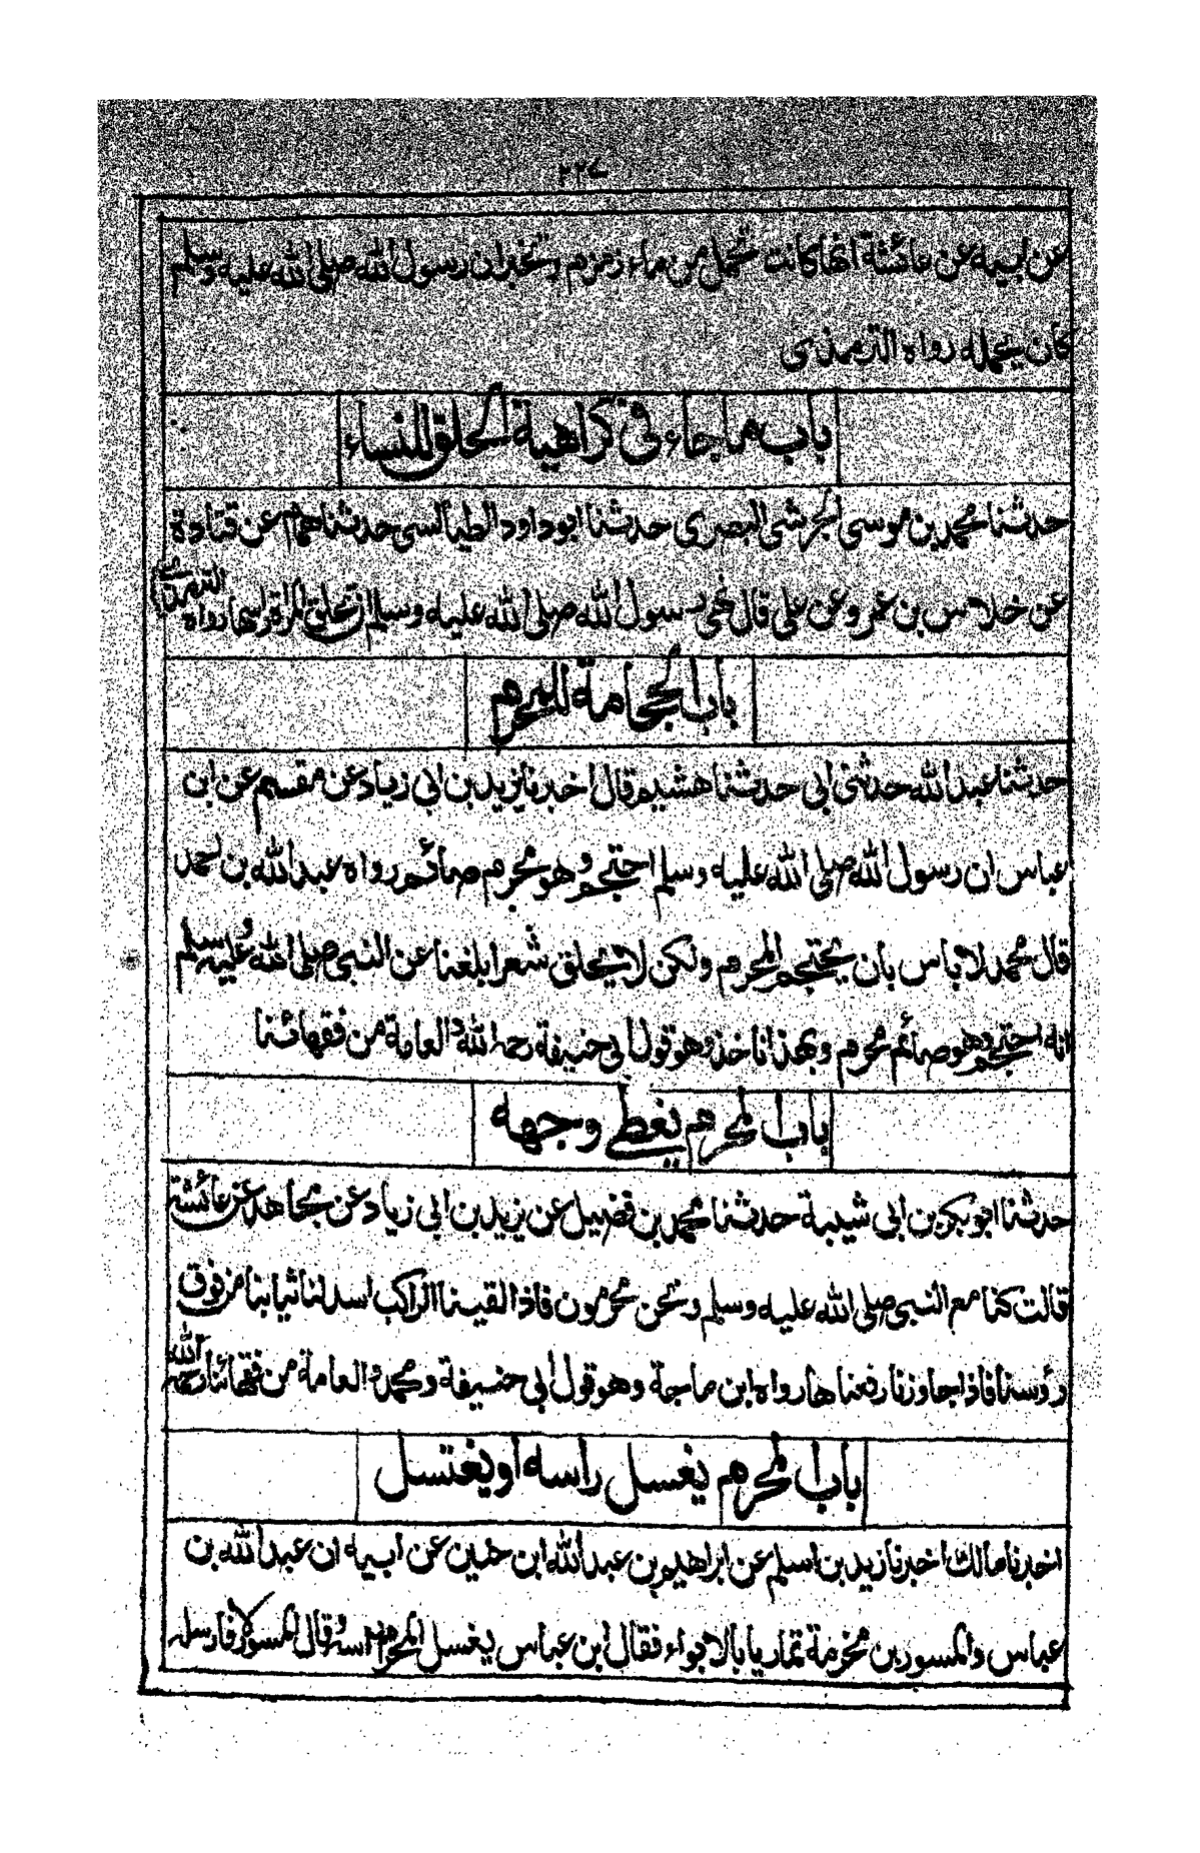 ٢٢٧
عن ابيه عن عائشة انها كانت تحمل من ماء زمزم وتخبر ان رسول الله صلى الله عليه وسلم
كان يحمله رواه الترمذى
باب ما جاء فى كراهية الحلق للنساء
حدثنا محمد بن موسى الجرشى البصرى حدثنا ابو داود الطيالسى حدثنا همام عن قتادة
عن خلاس بن عمرو عن على قال نهى رسول الله صلى الله عليه وسلم ان تحلق المرأة راسها رواه الترمذى
باب الحجامة للمحرم
حدثنا عبد الله حدثنى ابى حدثنا هشيم قال اخبرنا يزيد بن ابى زياد عن مقسم عن ابن
عباس ان رسول الله صلى الله عليه وسلم احتجم وهو محرم صائم رواه عبد الله بن احمد
قال محمد لا باس بان يحتجم المحرم ولكن لا يحلق شعرا بلغنا عن النبى صلى الله عليه وسلم
انه احتجم وهو صائم محرم وبهذا ناخذ وهو قول ابى حنيفة رحمه الله والعامة من فقهائنا
باب المحرم يغطى وجهه
حدثنا ابو بكر بن ابى شيبة حدثنا محمد بن فضيل عن يزيد بن ابى زياد عن مجاهد عن عائشة
قالت كنا مع النبى صلى الله عليه وسلم ونحن محرمون فاذا لقينا الراكب اسدلنا ثيابنا من فوق
رؤسنا فاذا جاوزنا رفعناها رواه ابن ماجة وهو قول ابى حنيفة ومحمد والعامة من فقهائنا رحمهم الله
باب المحرم يغسل رأسه أو يغتسل
اخبرنا مالك اخبرنا زيد بن اسلم عن ابراهيم بن عبد الله ابن حنين عن ابيه ان عبد الله بن
عباس والمسور بن مخرمة تماريا بالابواء فقال ابن عباس يغسل المحرم راسه وقال المسور لا فارسله